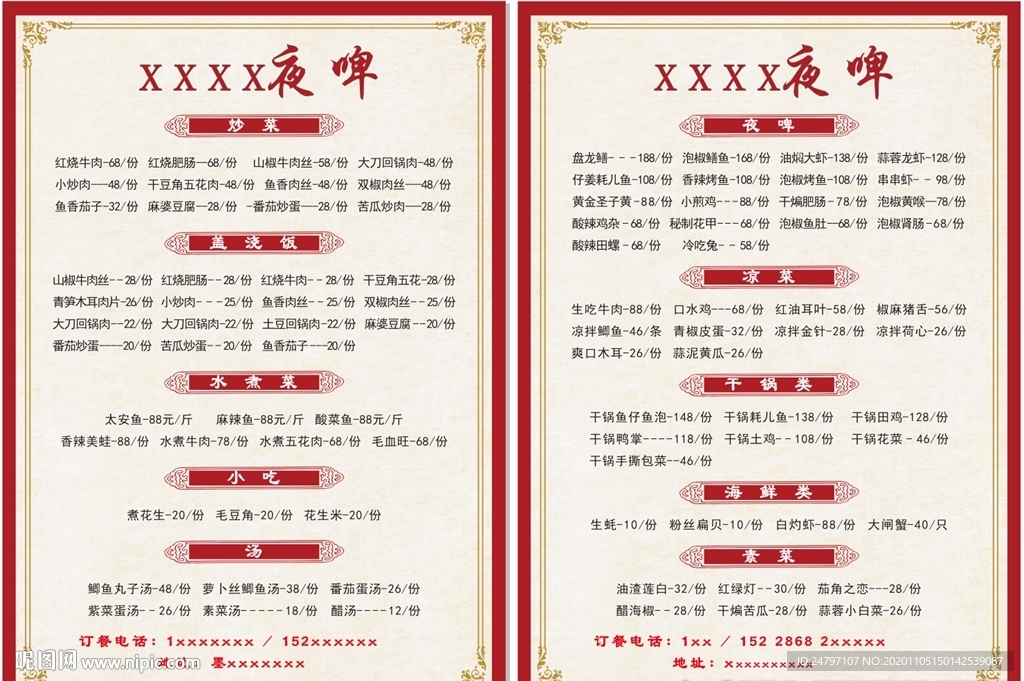 XXXX夜啤
炒菜
红烧牛肉-68/份 红烧肥肠--68/份 山椒牛肉丝-58/份 大刀回锅肉-48/份
小炒肉---48/份 干豆角五花肉-48/份 鱼香肉丝-48/份 双椒肉丝---48/份
鱼香茄子-32/份 麻婆豆腐--28/份 -番茄炒蛋---28/份 苦瓜炒肉---28/份
盖浇饭
山椒牛肉丝--28/份 红烧肥肠--28/份 红烧牛肉--28/份 干豆角五花-28/份
青笋木耳肉片-26/份 小炒肉---25/份 鱼香肉丝--25/份 双椒肉丝--25/份
大刀回锅肉--22/份 大刀回锅肉-22/份 土豆回锅肉-22/份 麻婆豆腐--20/份
番茄炒蛋----20/份 苦瓜炒蛋--20/份 鱼香茄子---20/份
水煮菜
太安鱼-88元/斤 麻辣鱼-88元/斤 酸菜鱼-88元/斤
香辣美蛙-88/份 水煮牛肉-78/份 水煮五花肉-68/份 毛血旺-68/份
小吃
煮花生-20/份 毛豆角-20/份 花生米-20/份
汤
鲫鱼丸子汤-48/份 萝卜丝鲫鱼汤-38/份 番茄蛋汤-26/份
紫菜蛋汤--26/份 素菜汤-----18/份 醋汤----12/份
订餐电话：1xxxxxxx / 152xxxxxx
墨xxxxxxx
昵图网 www.nipic.com
XXXX夜啤
夜啤
盘龙鳝---188/份 泡椒鳝鱼-168/份 油焖大虾-138/份 蒜蓉龙虾-128/份
仔姜耗儿鱼-108/份 香辣烤鱼-108/份 泡椒烤鱼-108/份 串串虾--98/份
黄金圣子黄-88/份 小煎鸡---88/份 干煸肥肠-78/份 泡椒黄喉--78/份
酸辣鸡杂-68/份 秘制花甲---68/份 泡椒鱼肚--68/份 泡椒肾肠-68/份
酸辣田螺-68/份 冷吃兔--58/份
凉菜
生吃牛肉-88/份 口水鸡---68/份 红油耳叶-58/份 椒麻猪舌-56/份
凉拌鲫鱼-46/条 青椒皮蛋-32/份 凉拌金针-28/份 凉拌荷心-26/份
爽口木耳-26/份 蒜泥黄瓜-26/份
干锅类
干锅鱼仔鱼泡-148/份 干锅耗儿鱼-138/份 干锅田鸡-128/份
干锅鸭掌----118/份 干锅土鸡--108/份 干锅花菜-46/份
干锅手撕包菜--46/份
海鲜类
生蚝-10/份 粉丝扁贝-10/份 白灼虾-88/份 大闸蟹-40/只
素菜
油渣莲白-32/份 红绿灯--30/份 茄角之恋---28/份
醋海椒--28/份 干煸苦瓜-28/份 蒜蓉小白菜-26/份
订餐电话：1xx / 152 2868 2xxxxx
地址：xxxxxxxxx
ID:24797107 NO:20201105150142539087